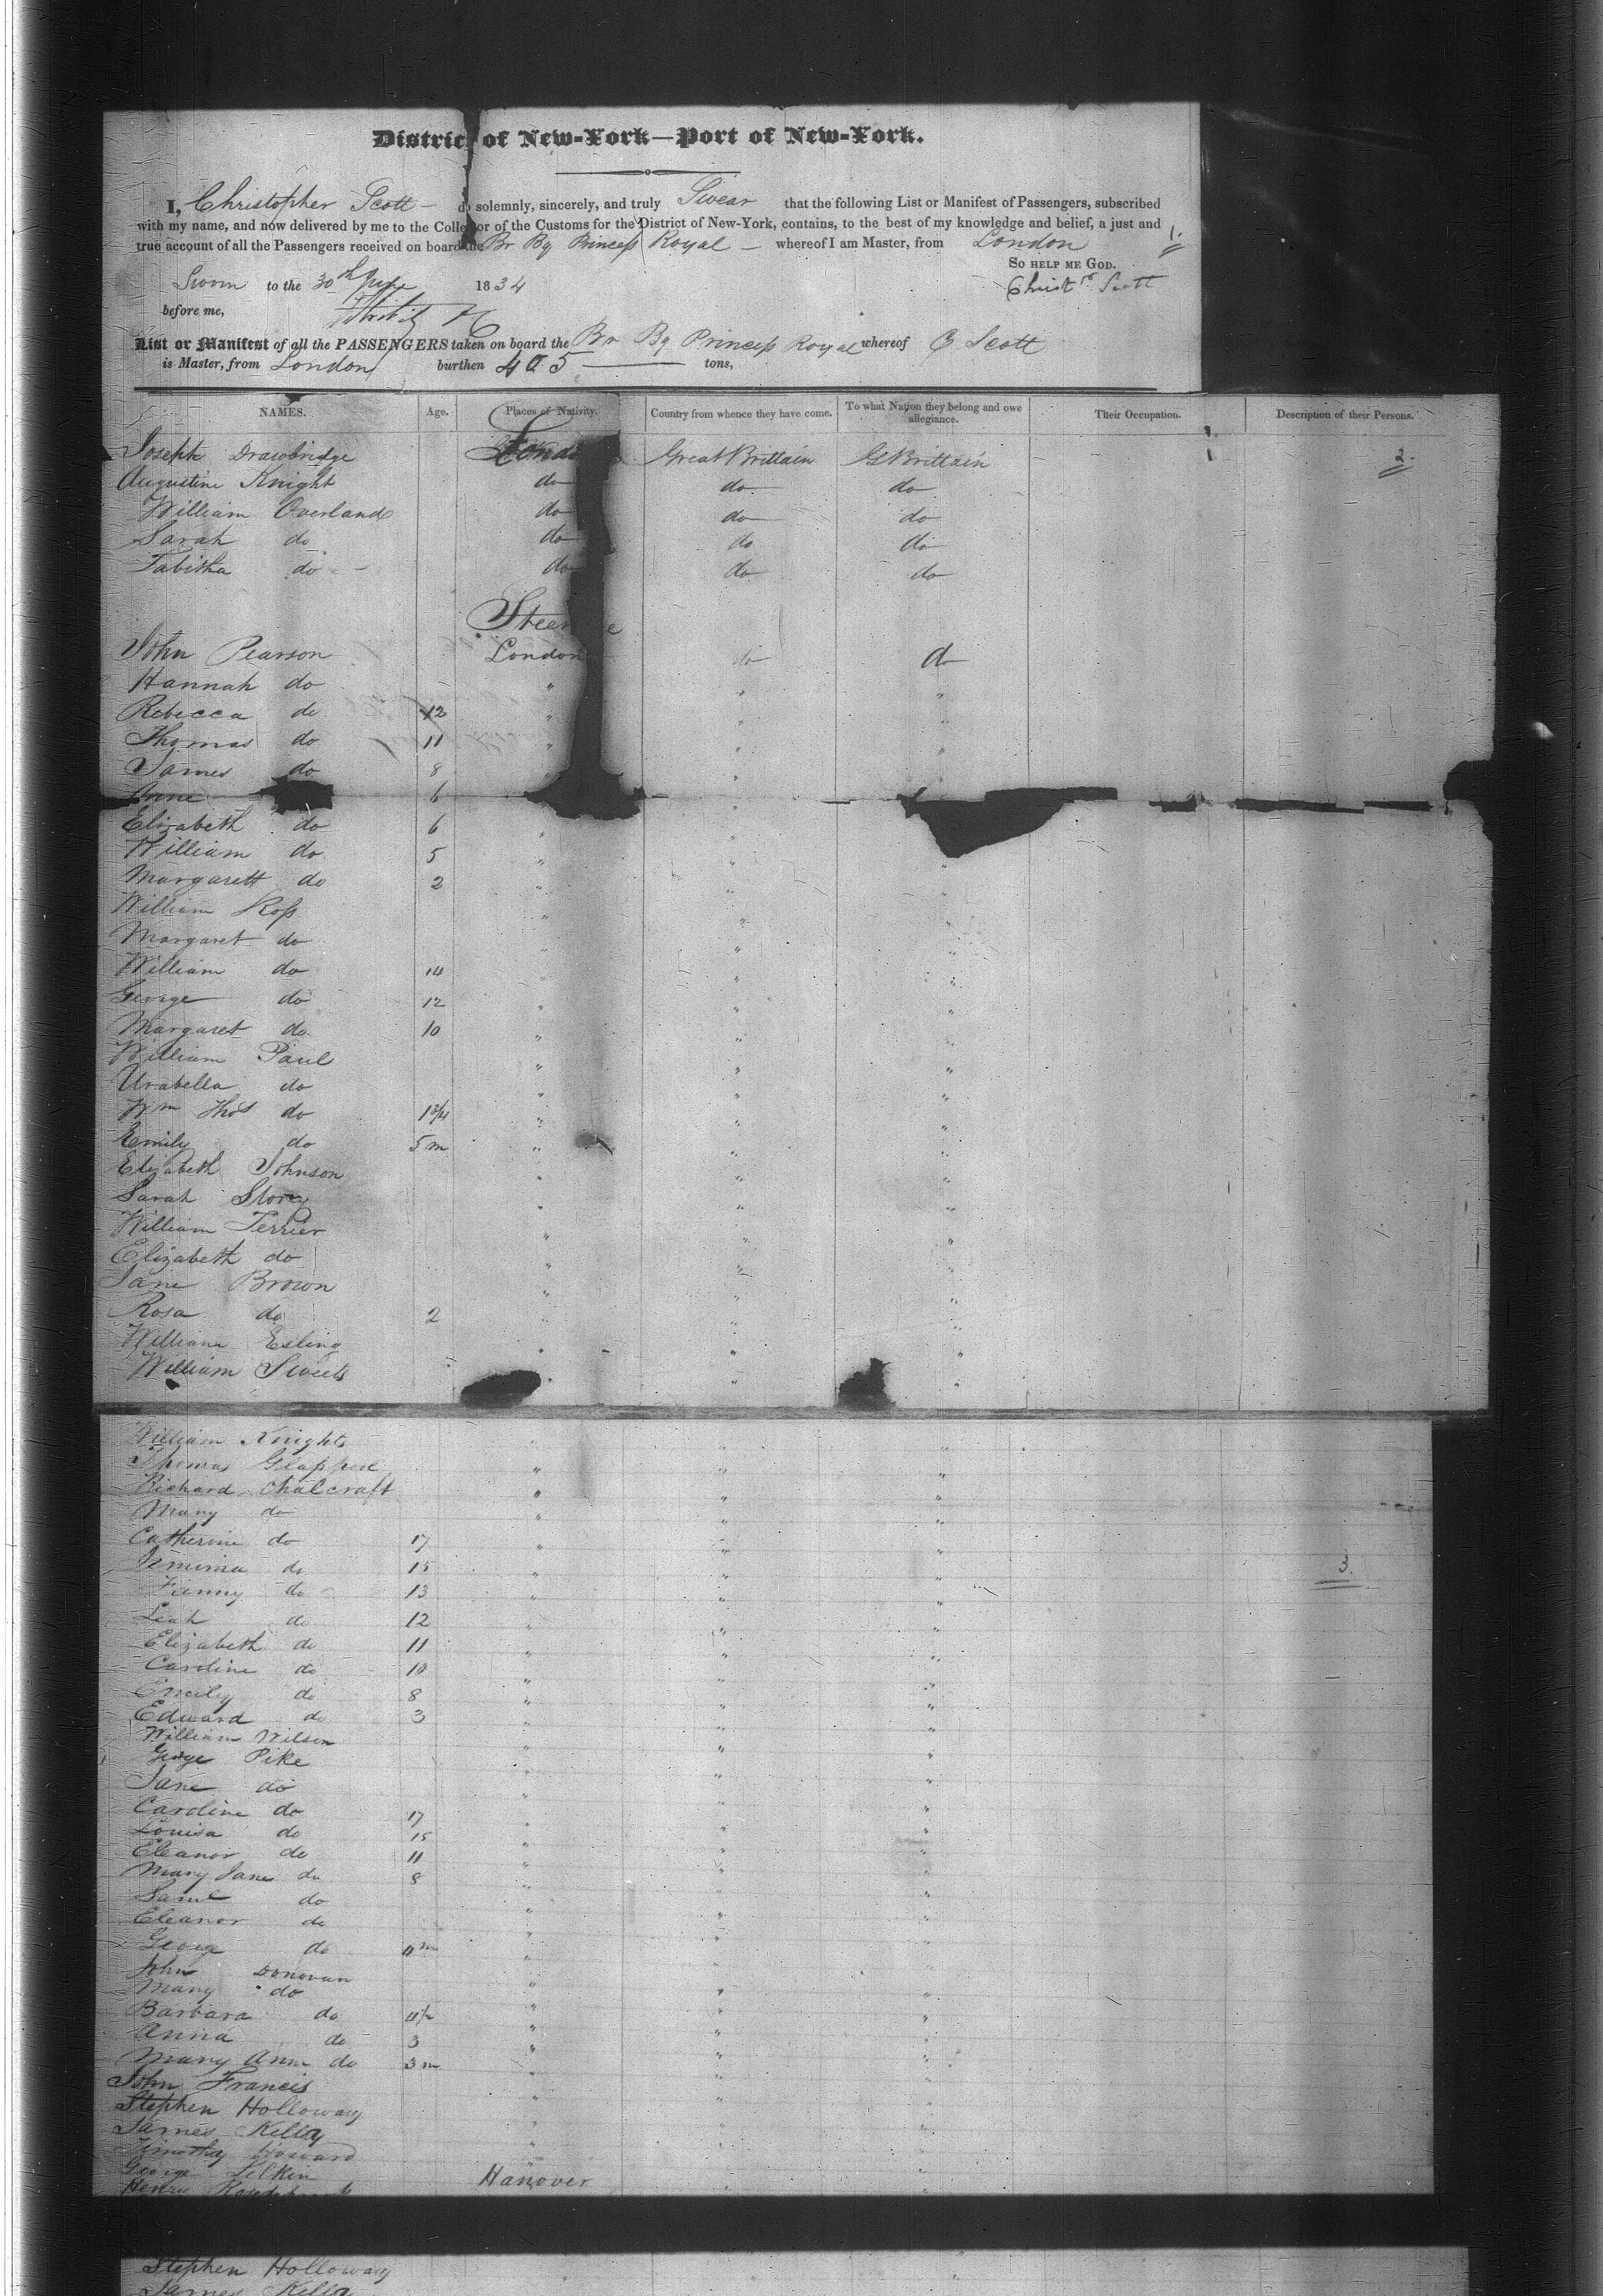 District of New-York—Port of New-York.
I, Christopher Scott - do solemnly, sincerely, and truly Swear that the following List or Manifest of Passengers, subscribed
with my name, and now delivered by me to the Collector of the Customs for the District of New-York, contains, to the best of my knowledge and belief, a just and
true account of all the Passengers received on board the Br Bg Princess Royal - whereof I am Master, from London 1.
So help me God.
Sworn to the 30th June 1834 Christr Scott
before me,
List or Manifest of all the PASSENGERS taken on board the Br Bg Princess Royal whereof C Scott
is Master, from London burthen 405 tons,
NAMES. Age. Places of Nativity. Country from whence they have come. To what Nation they belong and owe allegiance. Their Occupation. Description of their Persons.
Joseph Drawbridge Lond Great Brittain G Brittain 2.
Augustine Knight do do do
William Overland do do do
Sarah do do do do
Tabitha do - do do do
Steerage
John Pearson London do do
Hannah do " " "
Rebecca do 12 " " "
Thomas do 11 " " "
James do 8 " "
Anne 6 "
Elizabeth do 6 " "
William do 5 " " "
Margarett do 2 " " "
William Ross " " "
Margaret do " " "
William do 14 " " "
George do 12 " " "
Margaret do 10 " " "
William Paul " " "
Urabella do " " "
Wm Thos do 1 3/4 " " "
Emily do 5 m " " "
Elizabeth Johnson " " "
Sarah Storey " " "
William Terrier " " "
Elizabeth do " " "
Jane Brown " " "
Rosa do 2 " " "
William Esling " " "
William Sweets " " "
William Knights " " "
Thomas " " "
Richard Chalcraft " " "
Mary do " " "
Catherine do 17 " " "
Jemima do 15 " " " 3.
Fanny do 13 " " "
Leah do 12 " " "
Elizabeth do 11 " " "
Caroline do 10 " " "
Emily do 8 " " "
Edward do 3 " " "
William Wilson
George Pike " " "
Jane do " " "
Caroline do 17 " " "
Louisa do 15 " " "
Eleanor do 11 " " "
Mary Jane do 8 " " "
Saml do " " "
Eleanor do " " "
George do m " " "
John Donovan
Mary do " " "
Barbara do " " "
Anna do 3 " " "
Mary Ann do 3 m " " "
John Francis
Stephen Holloway " " "
James Kelly " " "
Timothy
George Hanover " "
Henry
Stephen Holloway
James Kelly